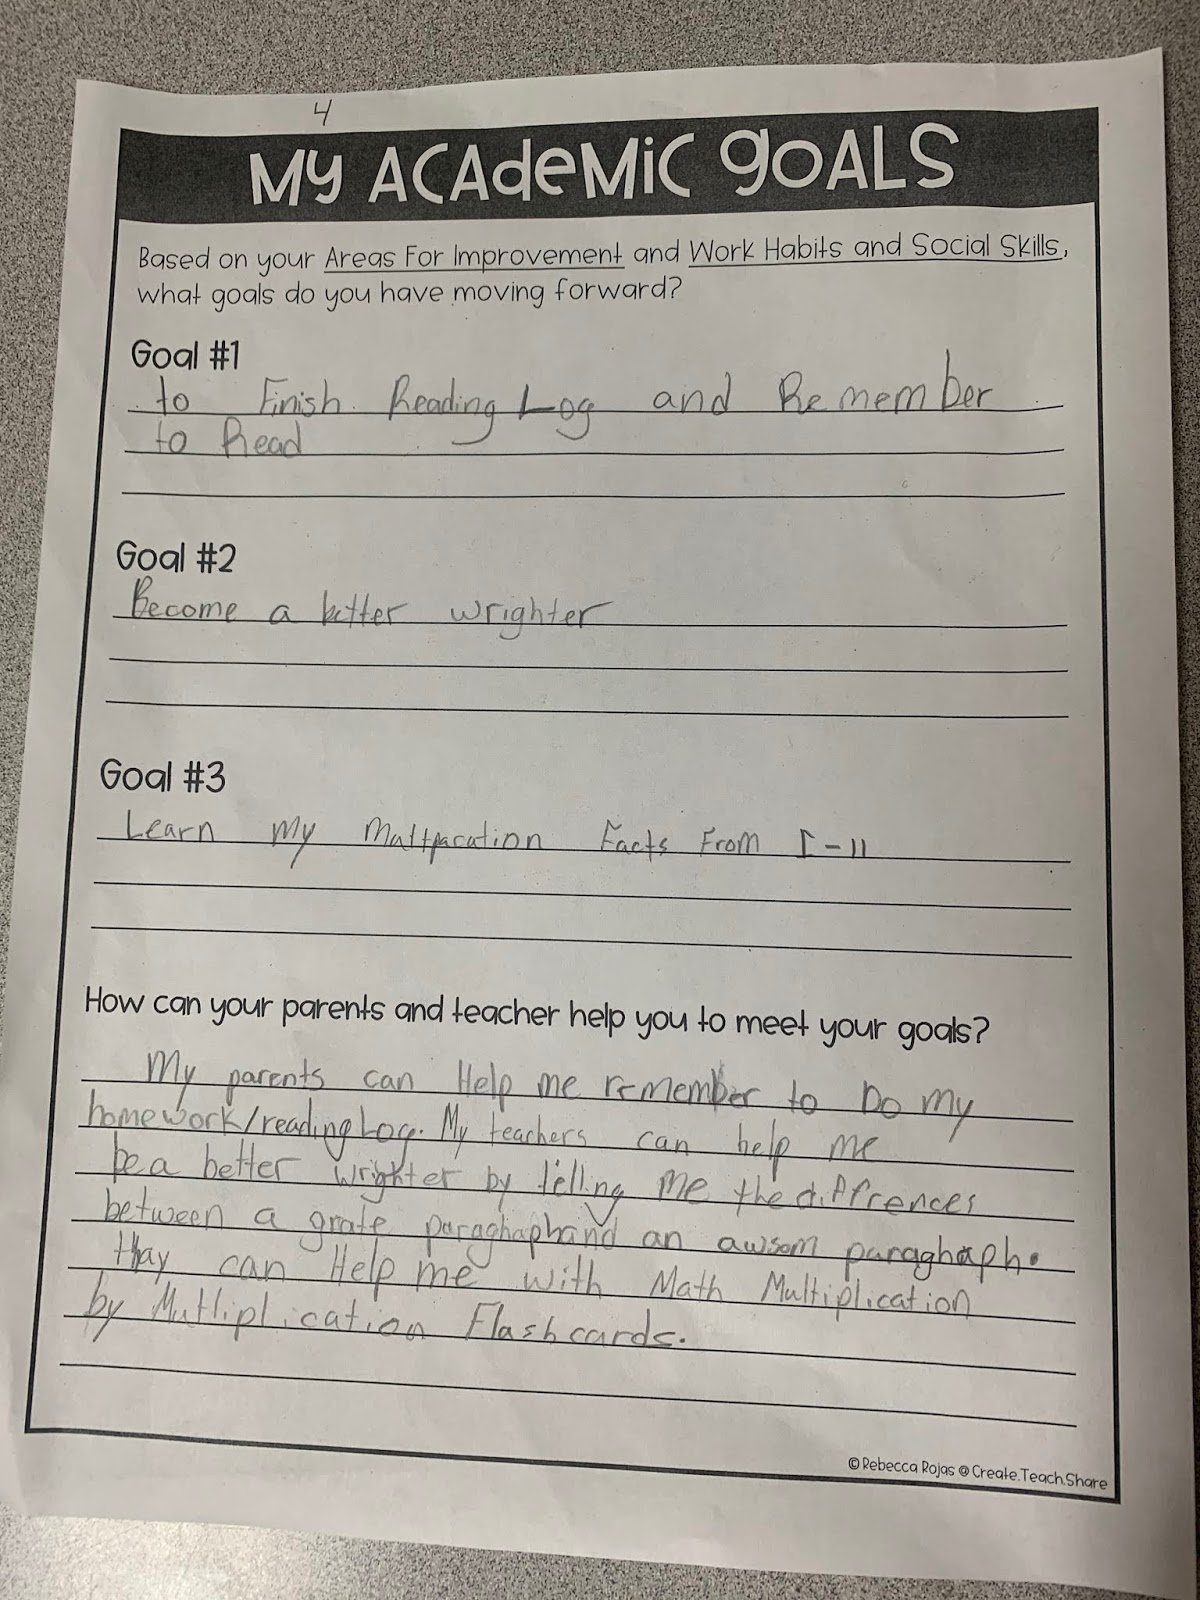 4
My ACAdeMiC goALS
Based on your Areas For Improvement and Work Habits and Social Skills,
what goals do you have moving forward?
Goal #1
to Finish Reading Log and Remember
to Read
Goal #2
Become a better wrighter
Goal #3
Learn my Maltpacation Facts From 1-11
How can your parents and teacher help you to meet your goals?
My parents can Help me remember to Do my
homework/reading Log. My teachers can help me
be a better wrighter by télling me the diffrences
between a grate paraghaph and an awsom paraghaph.
thay can Help me with Math Multiplication
by Mutliplication Flashcards.
© Rebecca Rojas @ Create.Teach.Share